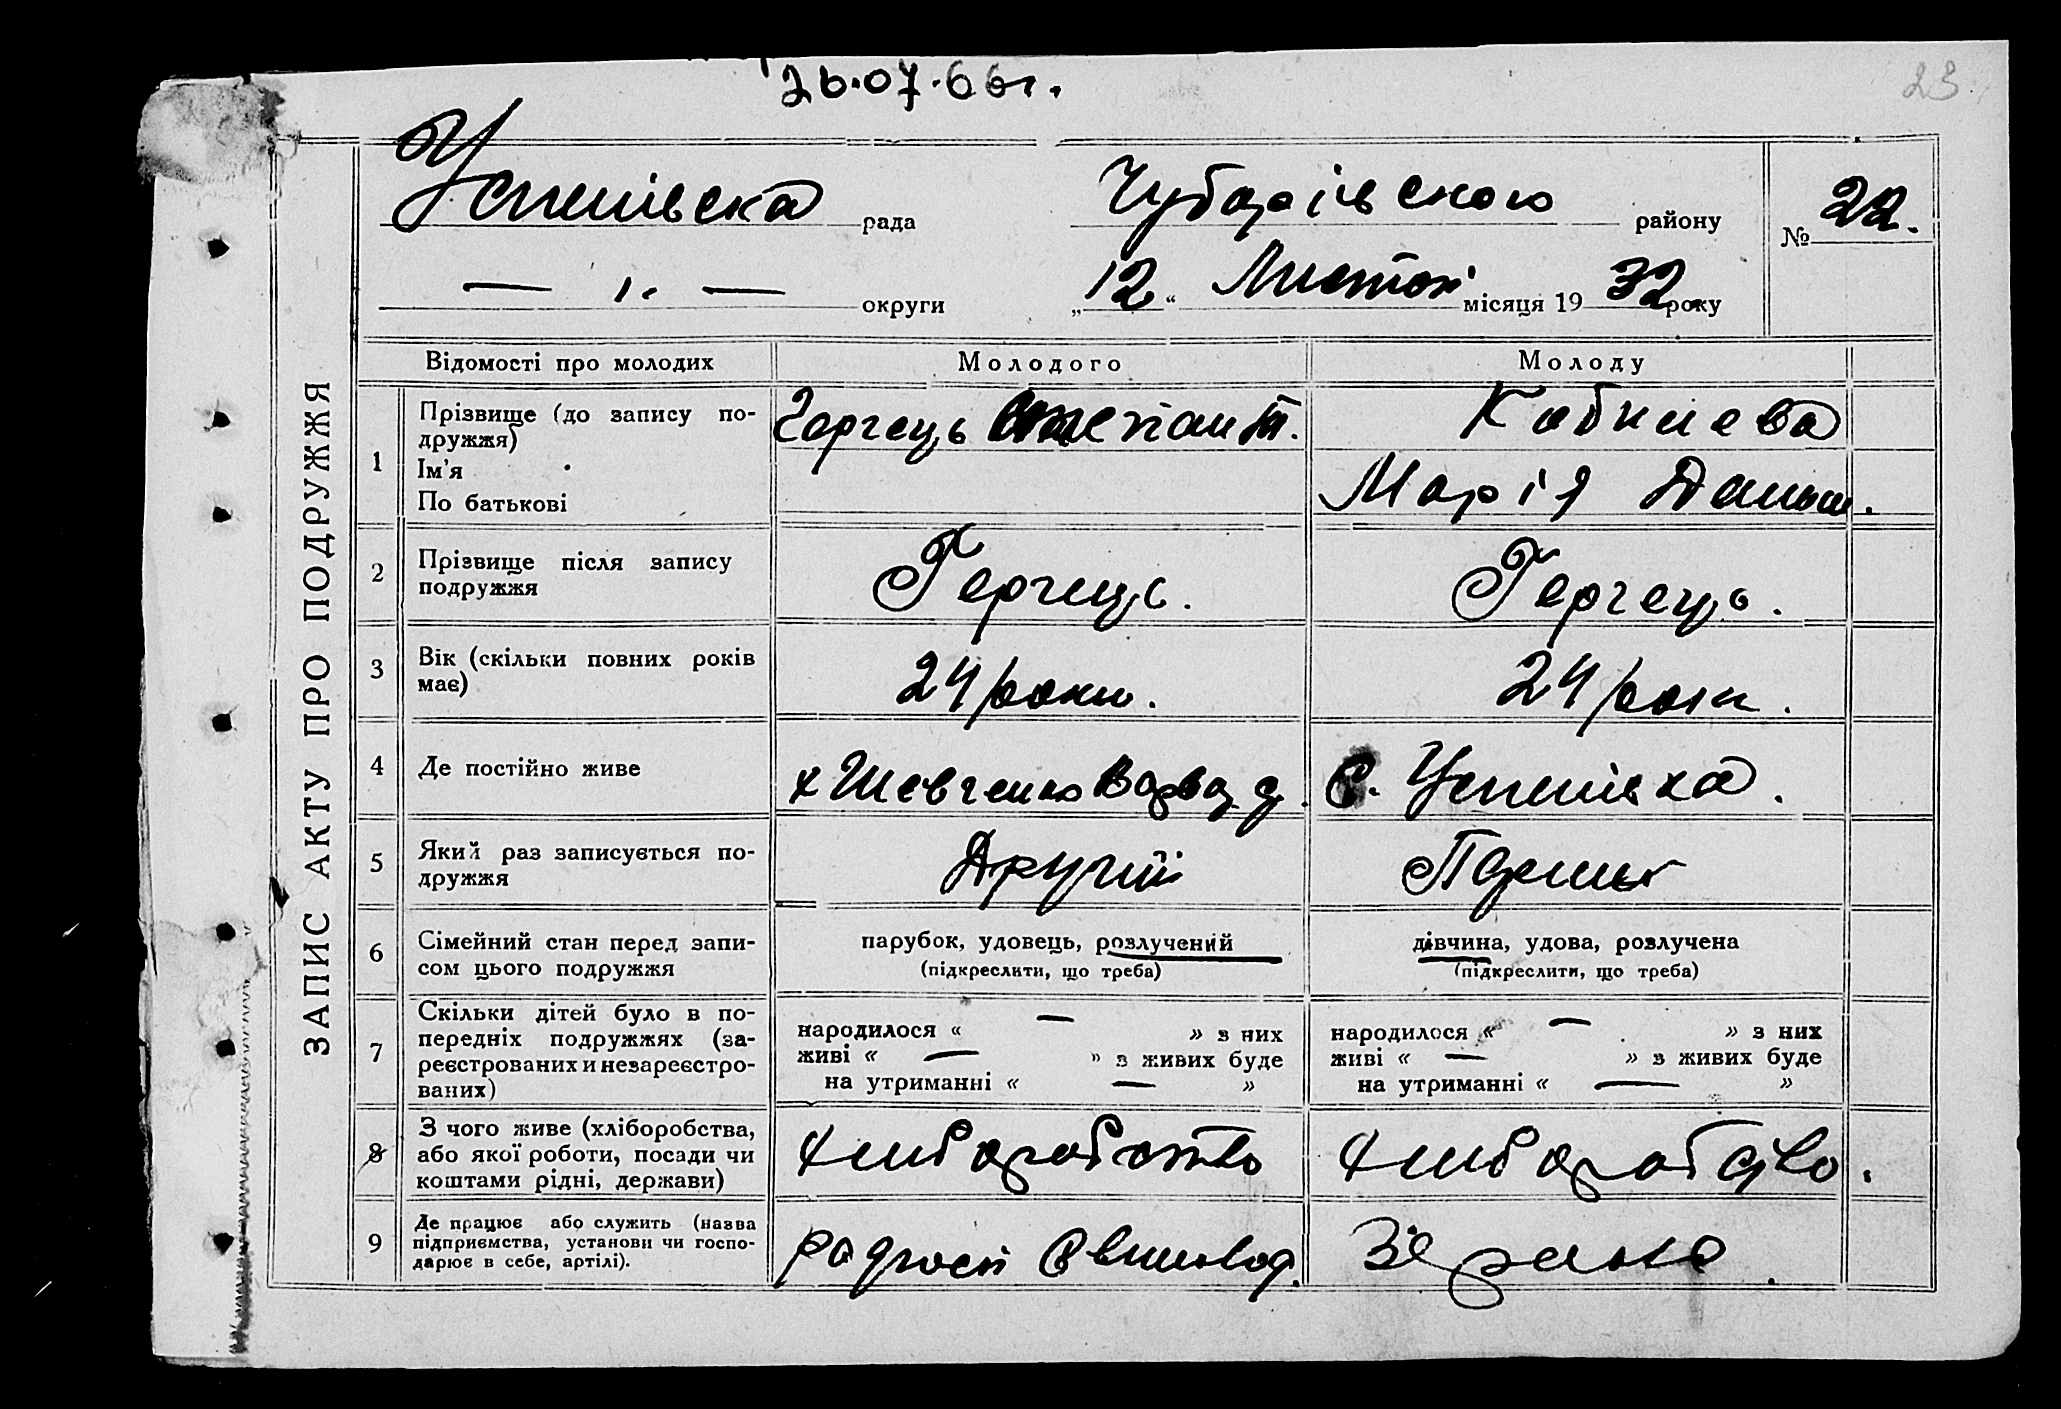 26.07.66г.
23
Успенівска рада
Чубарівского району
№ 22.
— " — округи
„12“ Листоп місяця 1932 року
ЗАПИС АКТУ ПРО ПОДРУЖЖЯ
Відомості про молодих
Молодого
Молоду
1
Прізвище (до запису по-
дружжя)
Ім'я
По батькові
Герчець Степан Т.
Марія Данил.
2
Прізвище після запису
подружжя
Герчець.
Герчець.
3
Вік (скільки повних років
має)
24 роки.
24 роки.
4
Де постійно живе
х Шевченко
с. Успенівка.
5
Який раз записується по-
дружжя
Другий
Перший
6
Сімейний стан перед запи-
сом цього подружжя
парубок, удовець, розлучений
(підкреслити, що треба)
дівчина, удова, розлучена
(підкреслити, що треба)
7
Скільки дітей було в по-
передніх подружжях (за-
реєстрованих и незареєстро-
ваних)
народилося « — » з них
живі « — » з живих буде
на утриманні « — »
народилося « — » з них
живі « — » з живих буде
на утриманні « — »
8
З чого живе (хліборобства,
або якої роботи, посади чи
коштами рідні, держави)
хліборобство
хліборобство.
9
Де працює або служить (назва
підприємства, установи чи госпо-
дарює в себе, артілі).
радгосп